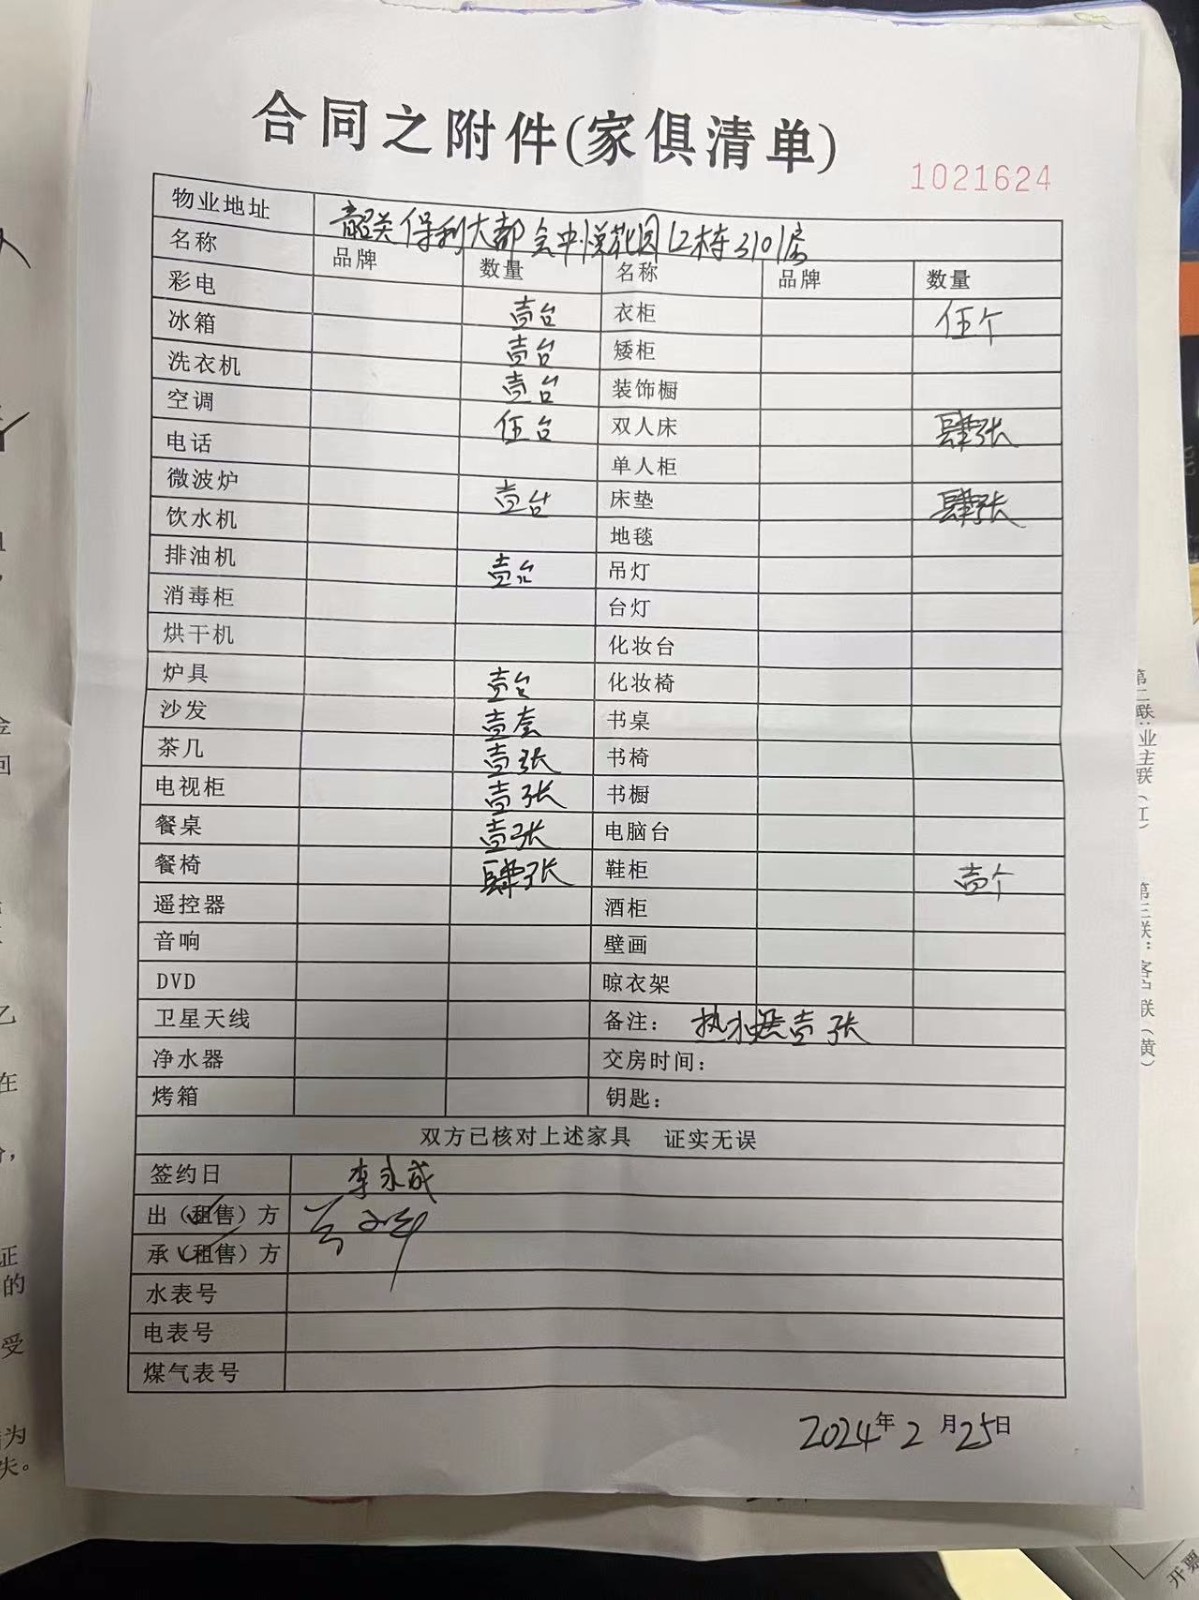 合同之附件(家俱清单)
1021624
物业地址 韶关保利大都会中悦花园12栋3101房
名称 品牌 数量 名称 品牌 数量
彩电 壹台 衣柜 伍个
冰箱 壹台 矮柜
洗衣机 壹台 装饰橱
空调 伍台 双人床 肆张
电话 单人柜
微波炉 壹台 床垫 肆张
饮水机 地毯
排油机 壹台 吊灯
消毒柜 台灯
烘干机 化妆台
炉具 壹台 化妆椅
沙发 壹套 书桌
茶几 壹张 书椅
电视柜 壹张 书橱
餐桌 壹张 电脑台
餐椅 肆张 鞋柜 壹个
遥控器 酒柜
音响 壁画
DVD 晾衣架
卫星天线 备注: 热水器壹张
净水器 交房时间:
烤箱 钥匙:
双方已核对上述家具 证实无误
签约日 李永成
出(租售)方
承(租售)方
水表号
电表号
煤气表号
2024年2月25日
第二联:业主联(红)
第三联:客户联(黄)
金
回
乙
在
证
的
受
为
失。
开票